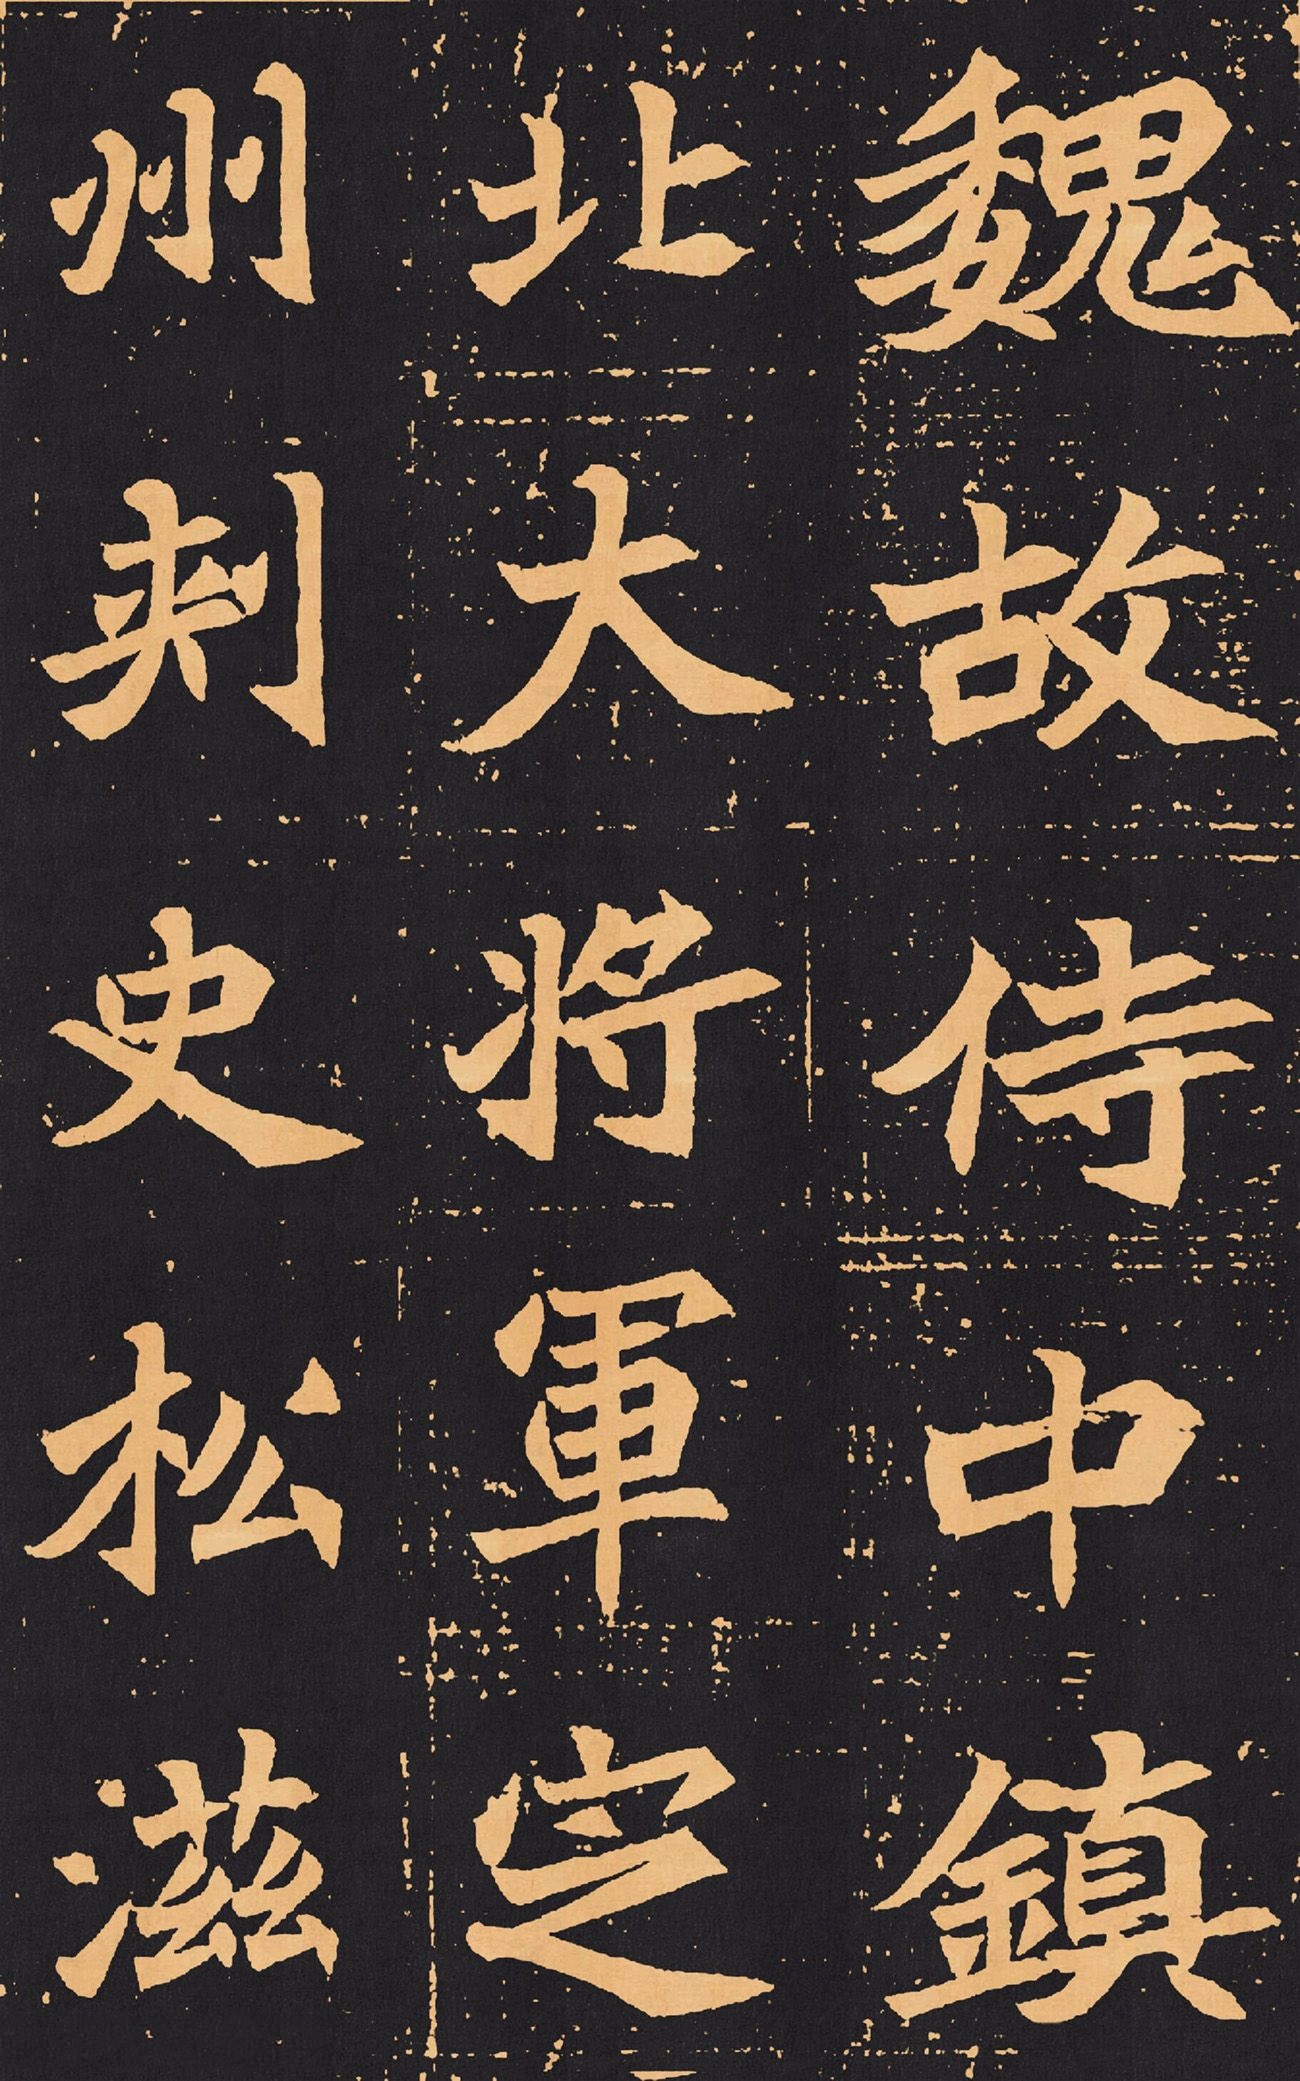 魏故侍中鎮
北大將軍定
州刺史松滋